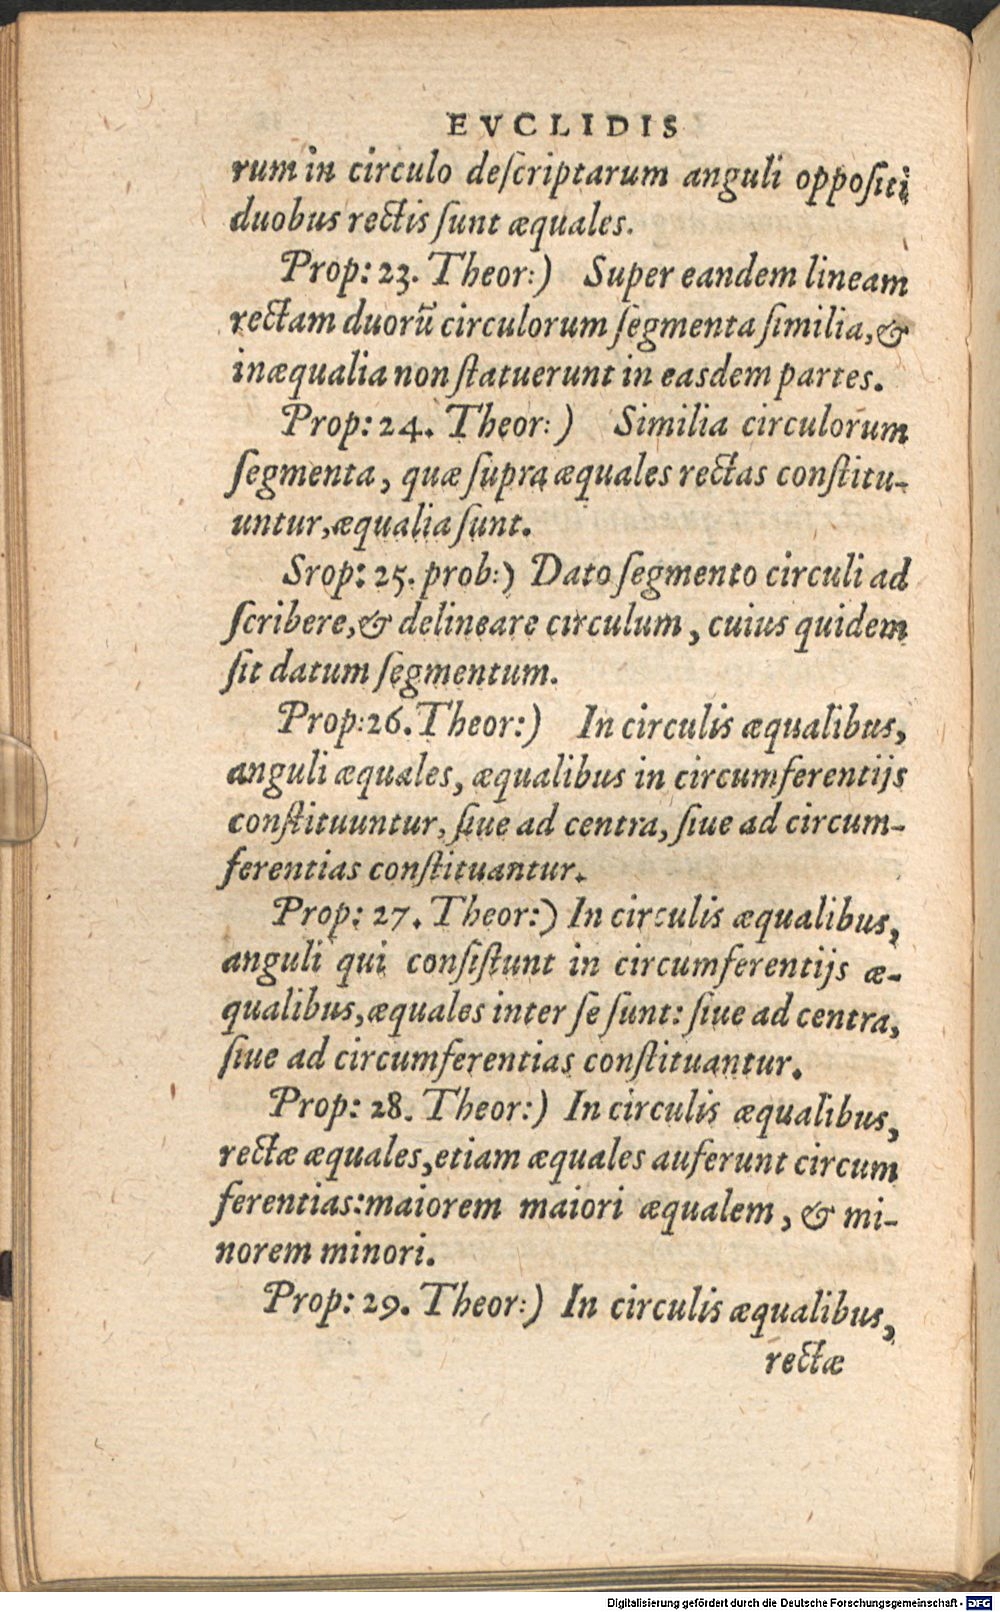 EVCLIDIS
rum in circulo deſcriptarum anguli oppoſiti
duobus rectis ſunt æquales.
Prop: 23. Theor:) Super eandem lineam
rectam duorũ circulorum ſegmenta ſimilia, &
inæqualia non ſtatuerunt in easdem partes.
Prop: 24. Theor:) Similia circulorum
ſegmenta, quæ ſupra æquales rectas conſtitu-
untur, æqualia ſunt.
Srop: 25. prob:) Dato ſegmento circuli ad
ſcribere, & delineare circulum, cuius quidem
ſit datum ſegmentum.
Prop: 26. Theor:) In circulis æqualibus,
anguli æquales, æqualibus in circumferentijs
conſtituuntur, ſiue ad centra, ſiue ad circum-
ferentias conſtituantur.
Prop: 27. Theor:) In circulis æqualibus,
anguli qui conſiſtunt in circumferentijs æ-
qualibus, æquales inter ſe ſunt: ſiue ad centra,
ſiue ad circumferentias conſtituantur.
Prop: 28. Theor:) In circulis æqualibus,
rectæ æquales, etiam æquales auferunt circum
ferentias: maiorem maiori æqualem, & mi-
norem minori.
Prop: 29. Theor:) In circulis æqualibus,
rectæ
Digitalisierung gefördert durch die Deutsche Forschungsgemeinschaft - DFG